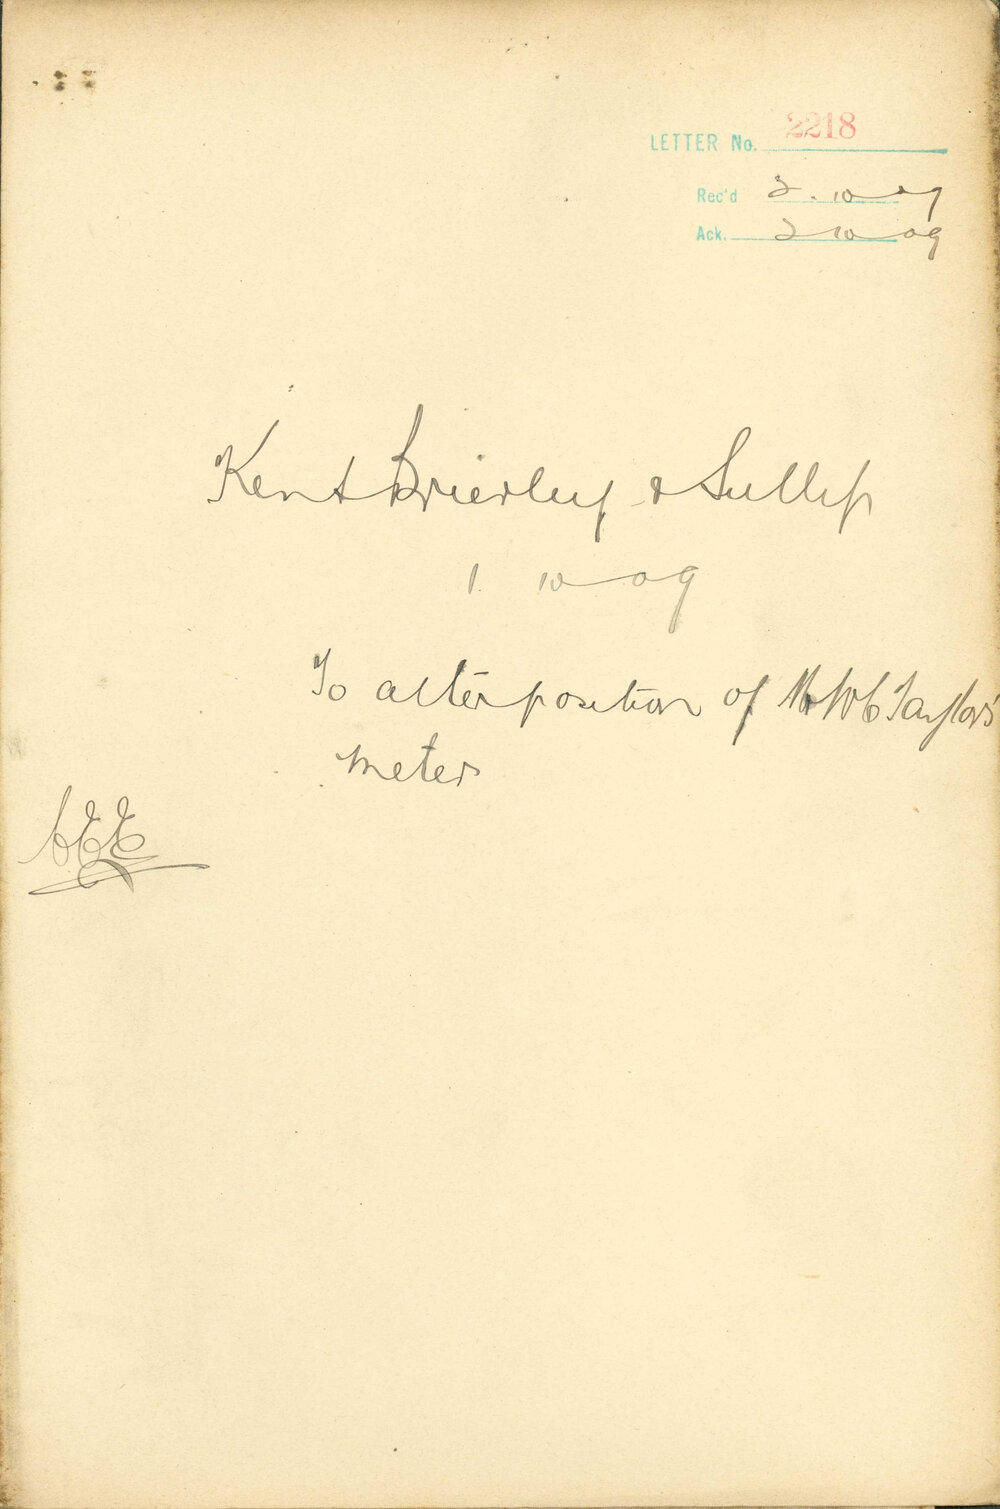 LETTER No. 2218
Rec'd 2.10.09
Ack. 2 10 09
Kent Brierley &
1. 10 09
To alter position of Mr W C Taylors'
meter